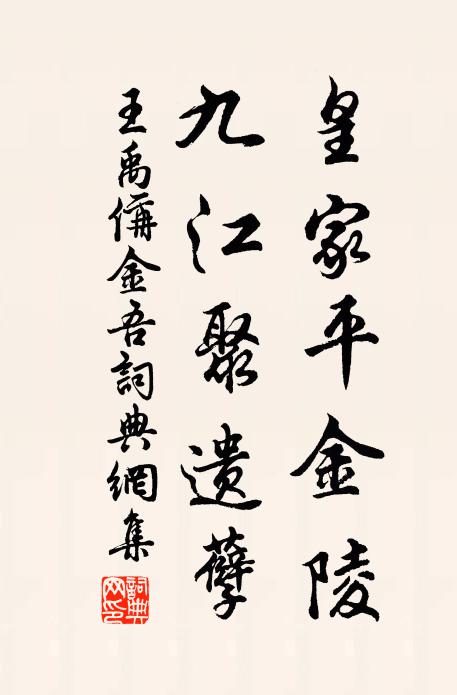 皇家平金陵
九江聚遗孽
王禹偁金吾詞典網集
詞典网印